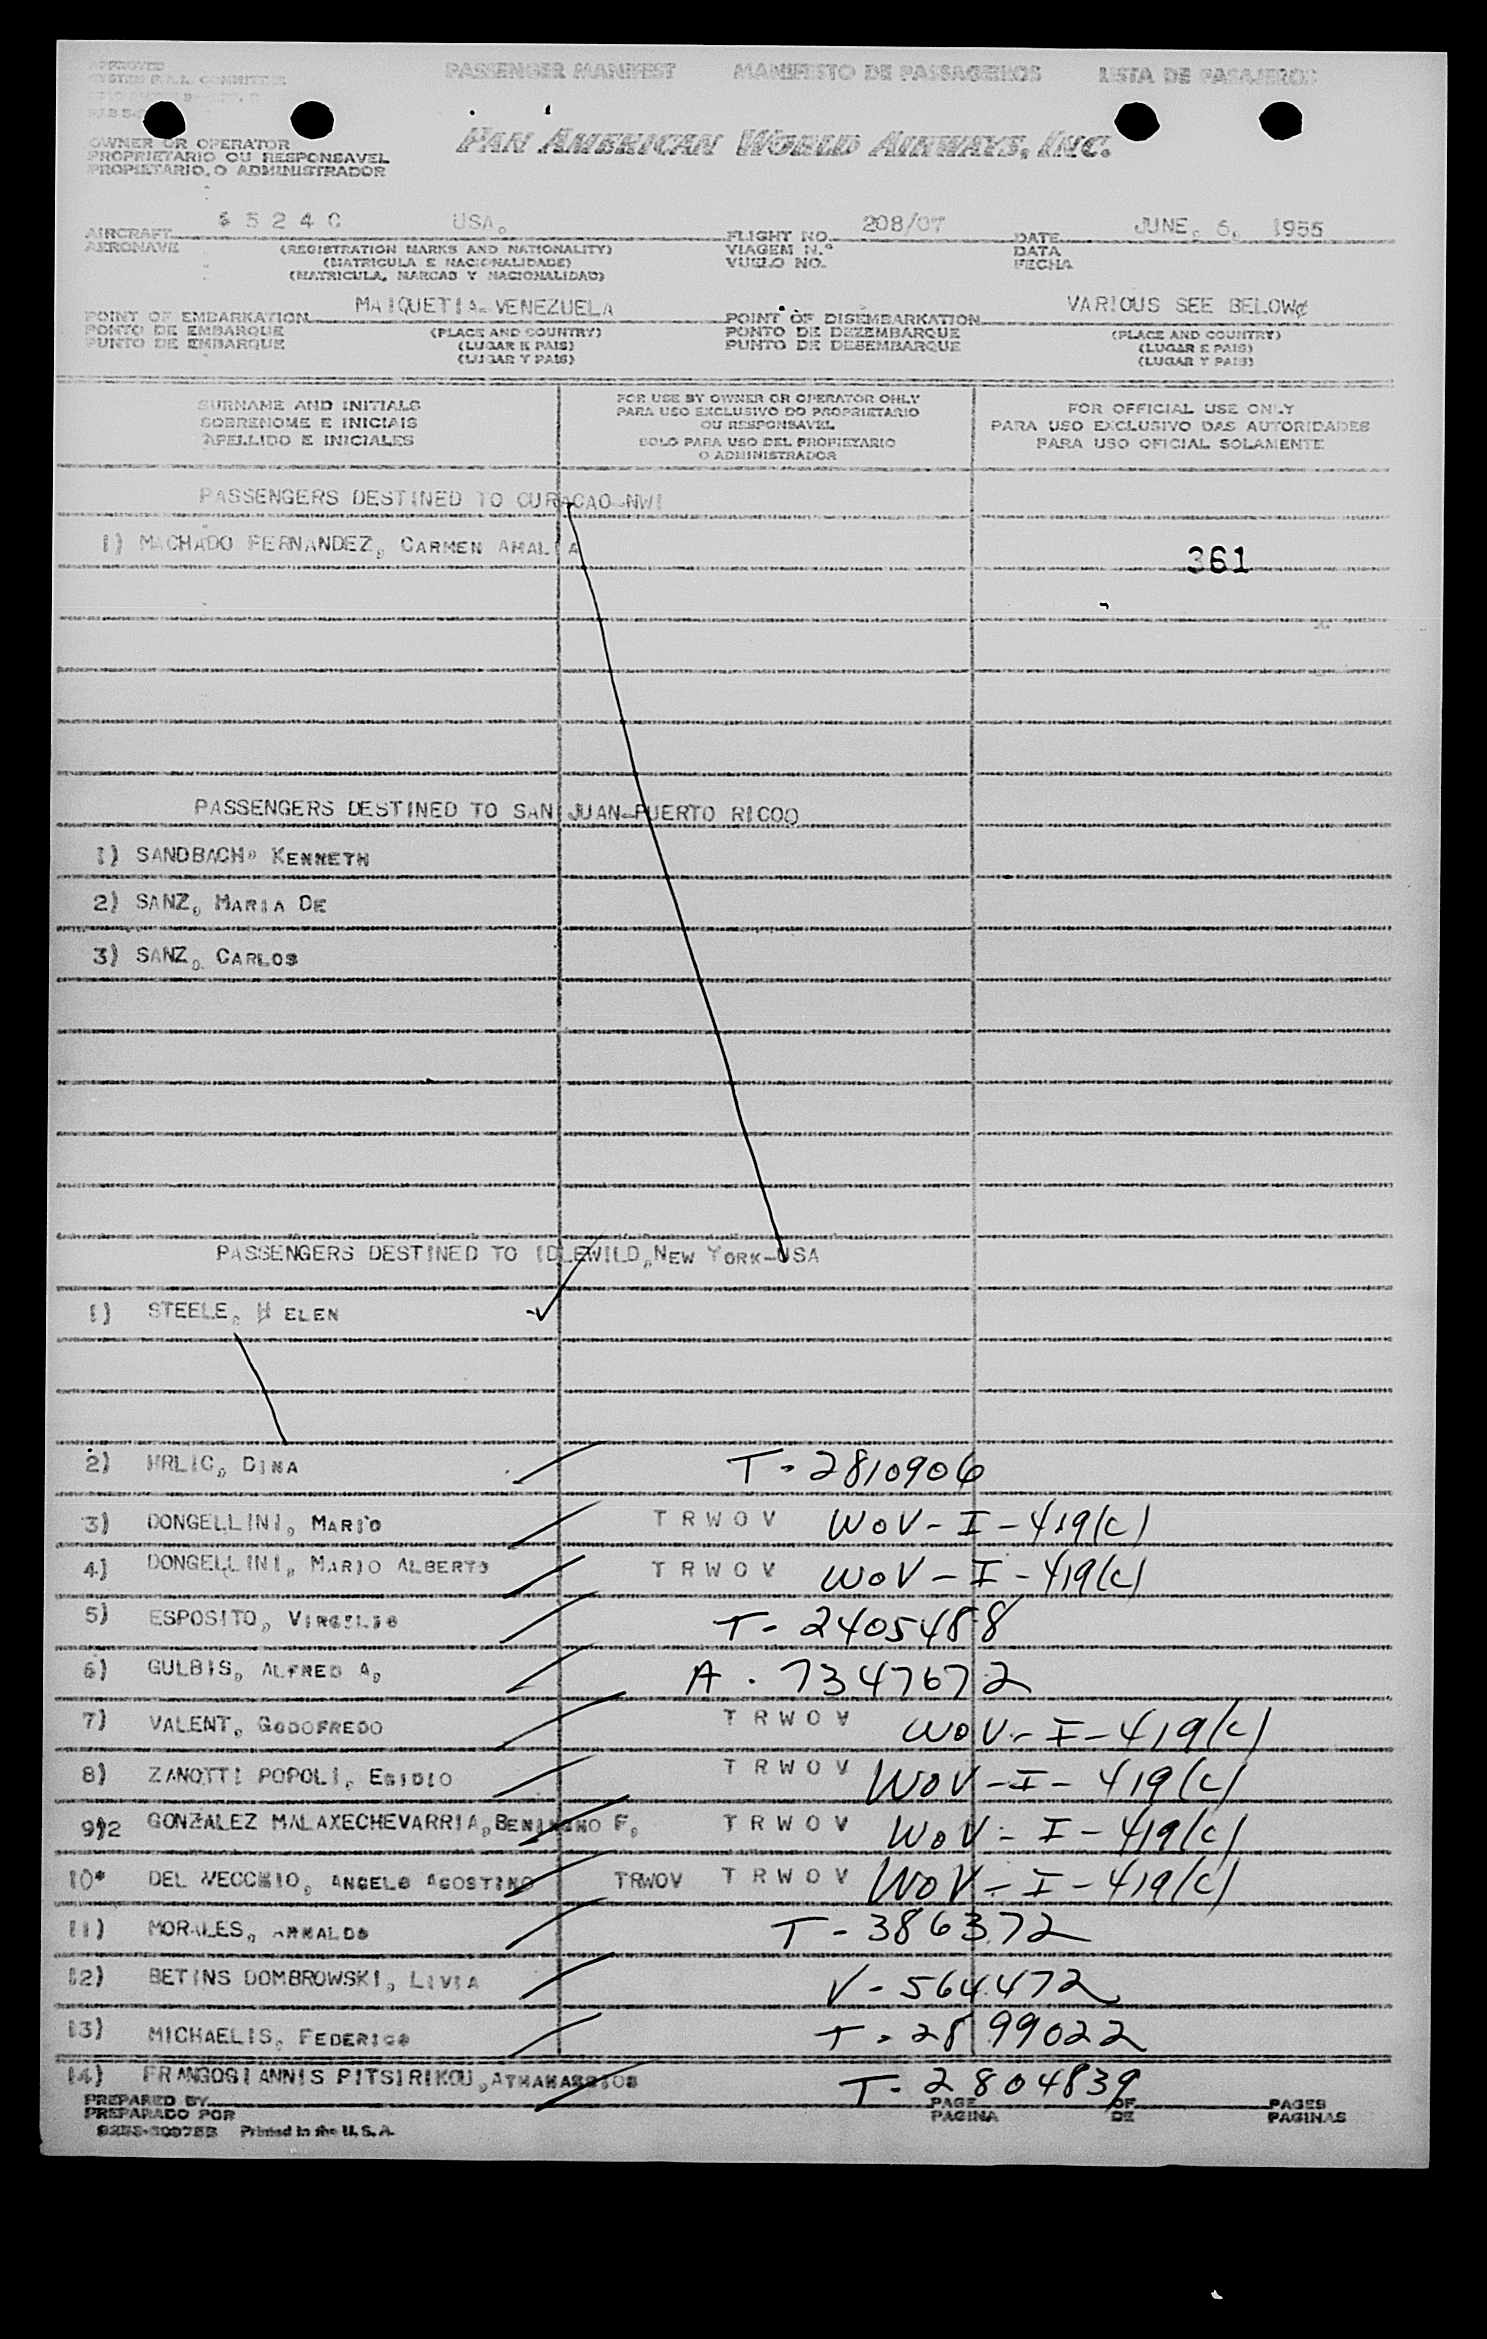 APPROVED
PASSENGER MANIFEST MANIFESTO DE PASSAGEIROS LISTA DE PASAJEROS
OWNER OR OPERATOR
PROPRIETARIO OU RESPONSAVEL
PROPIETARIO, O ADMINISTRADOR
PAN AMERICAN WORLD AIRWAYS, INC.
AIRCRAFT 5240 USA. FLIGHT NO. 208/07 DATE JUNE, 6, 1955
AERONAVE (REGISTRATION MARKS AND NATIONALITY) VIAGEM N.º DATA
(MATRICULA E NACIONALIDADE) VUELO NO. FECHA
(MATRICULA, MARCAS Y NACIONALIDAD)
POINT OF EMBARKATION MAIQUETIA-VENEZUELA POINT OF DISEMBARKATION VARIOUS SEE BELOW
PONTO DE EMBARQUE (PLACE AND COUNTRY) PONTO DE DEZEMBARQUE (PLACE AND COUNTRY)
PUNTO DE EMBARQUE (LUGAR E PAIS) PUNTO DE DESEMBARQUE (LUGAR E PAIS)
(LUGAR Y PAIS) (LUGAR Y PAIS)
SURNAME AND INITIALS
SOBRENOME E INICIAIS
APELLIDO E INICIALES
FOR USE BY OWNER OR OPERATOR ONLY
PARA USO EXCLUSIVO DO PROPRIETARIO
OU RESPONSAVEL
SOLO PARA USO DEL PROPIETARIO
O ADMINISTRADOR
FOR OFFICIAL USE ONLY
PARA USO EXCLUSIVO DAS AUTORIDADES
PARA USO OFICIAL SOLAMENTE
PASSENGERS DESTINED TO CURACAO-NWI
1) MACHADO FERNANDEZ, CARMEN AMALIA
361
PASSENGERS DESTINED TO SAN JUAN-PUERTO RICOO
1) SANDBACH, KENNETH
2) SANZ, MARIA DE
3) SANZ, CARLOS
PASSENGERS DESTINED TO IDLEWILD, NEW YORK-USA
1) STEELE, HELEN
2) HRLIC, DINA T-2810906
3) DONGELLINI, MARIO TRWOV WOV-I-419(c)
4) DONGELLINI, MARIO ALBERTO TRWOV WOV-I-419(c)
5) ESPOSITO, VIRGILIO T-2405488
6) GULBIS, ALFRED A, A. 7347672
7) VALENT, GODOFREDO TRWOV WOV-I-419(c)
8) ZANOTTI POPOLI, EGIDIO TRWOV WOV-I-419(c)
9)2 GONZALEZ MALAXECHEVARRIA, BENIGNO F, TRWOV WOV-I-419(c)
10* DEL VECCHIO, ANGELO AGOSTINO TRWOV TRWOV WOV-I-419(c)
11) MORALES, ARNALDO T-386372
12) BETINS DOMBROWSKI, LIVIA V-564472
13) MICHAELIS, FEDERICO T-2899022
14) FRANGOGIANNIS PITSIRIKOU, ATHANASSIOS T-2804839
PREPARED BY PAGE OF PAGES
PREPARADO POR PAGINA DE PAGINAS
Printed in the U.S.A.